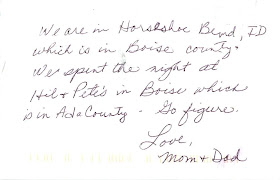 We are in Horseshoe Bend, ID
which is in Boise county.
We spent the night at
Hil & Pete's in Boise which
is in Ada County - Go figure.
Love,
Mom & Dad